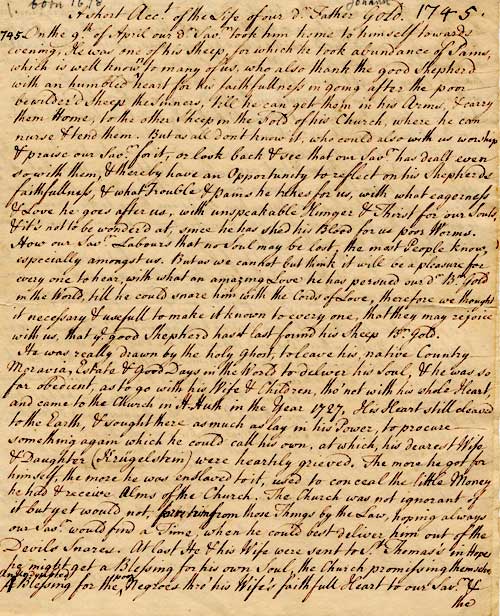 1. born 1678
Johann
A short Acct. of the Life of our dr. Father Gold. 1745.
1745 On the 9th. of April our dr. Savr. took him home to himself towards
evening, He was one of his Sheep, for which he took abundance of Pains,
which is well know'to many of us, who also thank the good Shepherd
with an humbled heart for his faithfullness in going after the poor
bewilder'd Sheep the Sinners, till he can get them in his Arms, & carry
them Home, to the other Sheep in the Fold of his Church, where he can
nurse & tend them. But as all don't know it, who could also with us worship
& praise our Savr. for it, or look back & see that our Savr. has dealt even
so with them, & thereby have an Opportunity to reflect on his Shepherds
faithfullness, & what Trouble & pains he takes for us, with what eagerness
& Love he goes after us, with unspeakable Hunger & Thirst for our Souls
& it's not to be wonder'd at, since he has shed his Blood for us poor Worms.
How our Savr. Labours that no Soul may be lost, the most People know,
especially amongst us. But as we cannot but think it will be a pleasure for
every one to hear, with what an amazing Love he has persued our dr. Br. Gold
in the World, till he could snare him with the Cords of Love, therefore we thought
it necessary & usefull to make it known to every one, that they may rejoice
with us, that ye. good Shepherd has at last found his Sheep Br. Gold.
He was really drawn by the holy Ghost, to leave his native Country
Moravia, Estate & good Days in the World to deliver his Soul, & he was so
far obedient, as to go with his Wife & Children, tho' not with his whole Heart,
and came to the Church in H. Huth in the Year 1727. His Heart still cleaved
to the Earth, & sought there as much as lay in his Power, to procure
something again which he could call his own, at which, his dearest Wife
& Daughter (Krügelstein) were heartily grieved. The more he got for
himself, the more he was enslaved to it, used to conceal the little Money
he had & receive Alms of the Church. The Church was not ignorant of
it but yet would not, from those Things by the Law, hoping always
our Savr. would find a Time, when he could best deliver him out of the
Devils Snares. At last He & his Wife were sent to St. Thomas's in Hopes
he might get a Blessing for his own Soul, the Church promising themselves
A Blessing for the poor Negroes thro' his Wife's faithfull Heart to our Savr. &
the